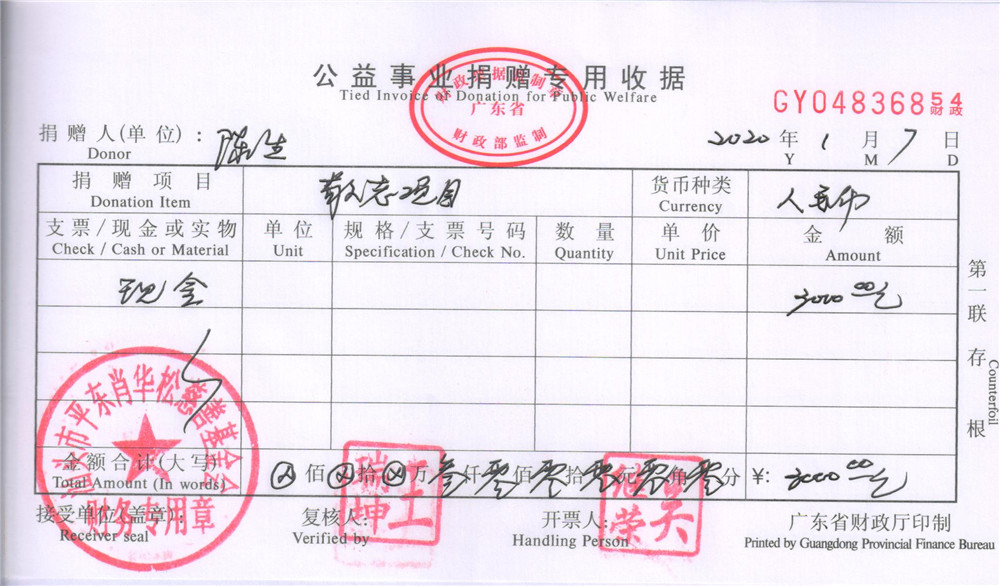 公益事业捐赠专用收据
Tied Invoice of Donation for Public Welfare
财政部监制
广东省
GY04836854
财政
捐赠人(单位):陈生
Donor
2020年1月7日
Y M D
捐赠项目
Donation Item
项目
货币种类
Currency
人民币
支票/现金或实物
Check / Cash or Material
单位
Unit
规格/支票号码
Specification / Check No.
数量
Quantity
单价
Unit Price
金额
Amount
现金
3000.00元
第一联 存根
Counterfoil
市平东肖华松慈善基金会
财务专用章
金额合计(大写)
Total Amount (In words)
佰拾万叁仟零佰零拾零元零角零分
¥: 3000.00元
接受单位(盖章):
Receiver seal
复核人:
Verified by
王瑞坤
开票人:
Handling Person
吴继荣
广东省财政厅印制
Printed by Guangdong Provincial Finance Bureau